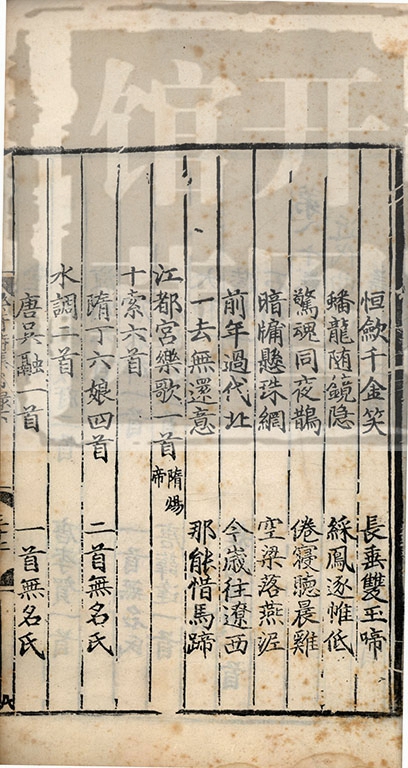 恒歛千金笑　長垂雙玉啼
蟠龍随鏡隐　綵鳳逐帷低
驚魂同夜鵲　倦寢聴晨雞
暗牖懸珠網　空梁落燕泥
前年過代北　今歳往遼西
一去無還意　那能惜馬蹄
江都宮樂歌一首 隋煬帝
十索六首
隋丁六娘四首　二首無名氏
水調二首
唐吳融一首　一首無名氏